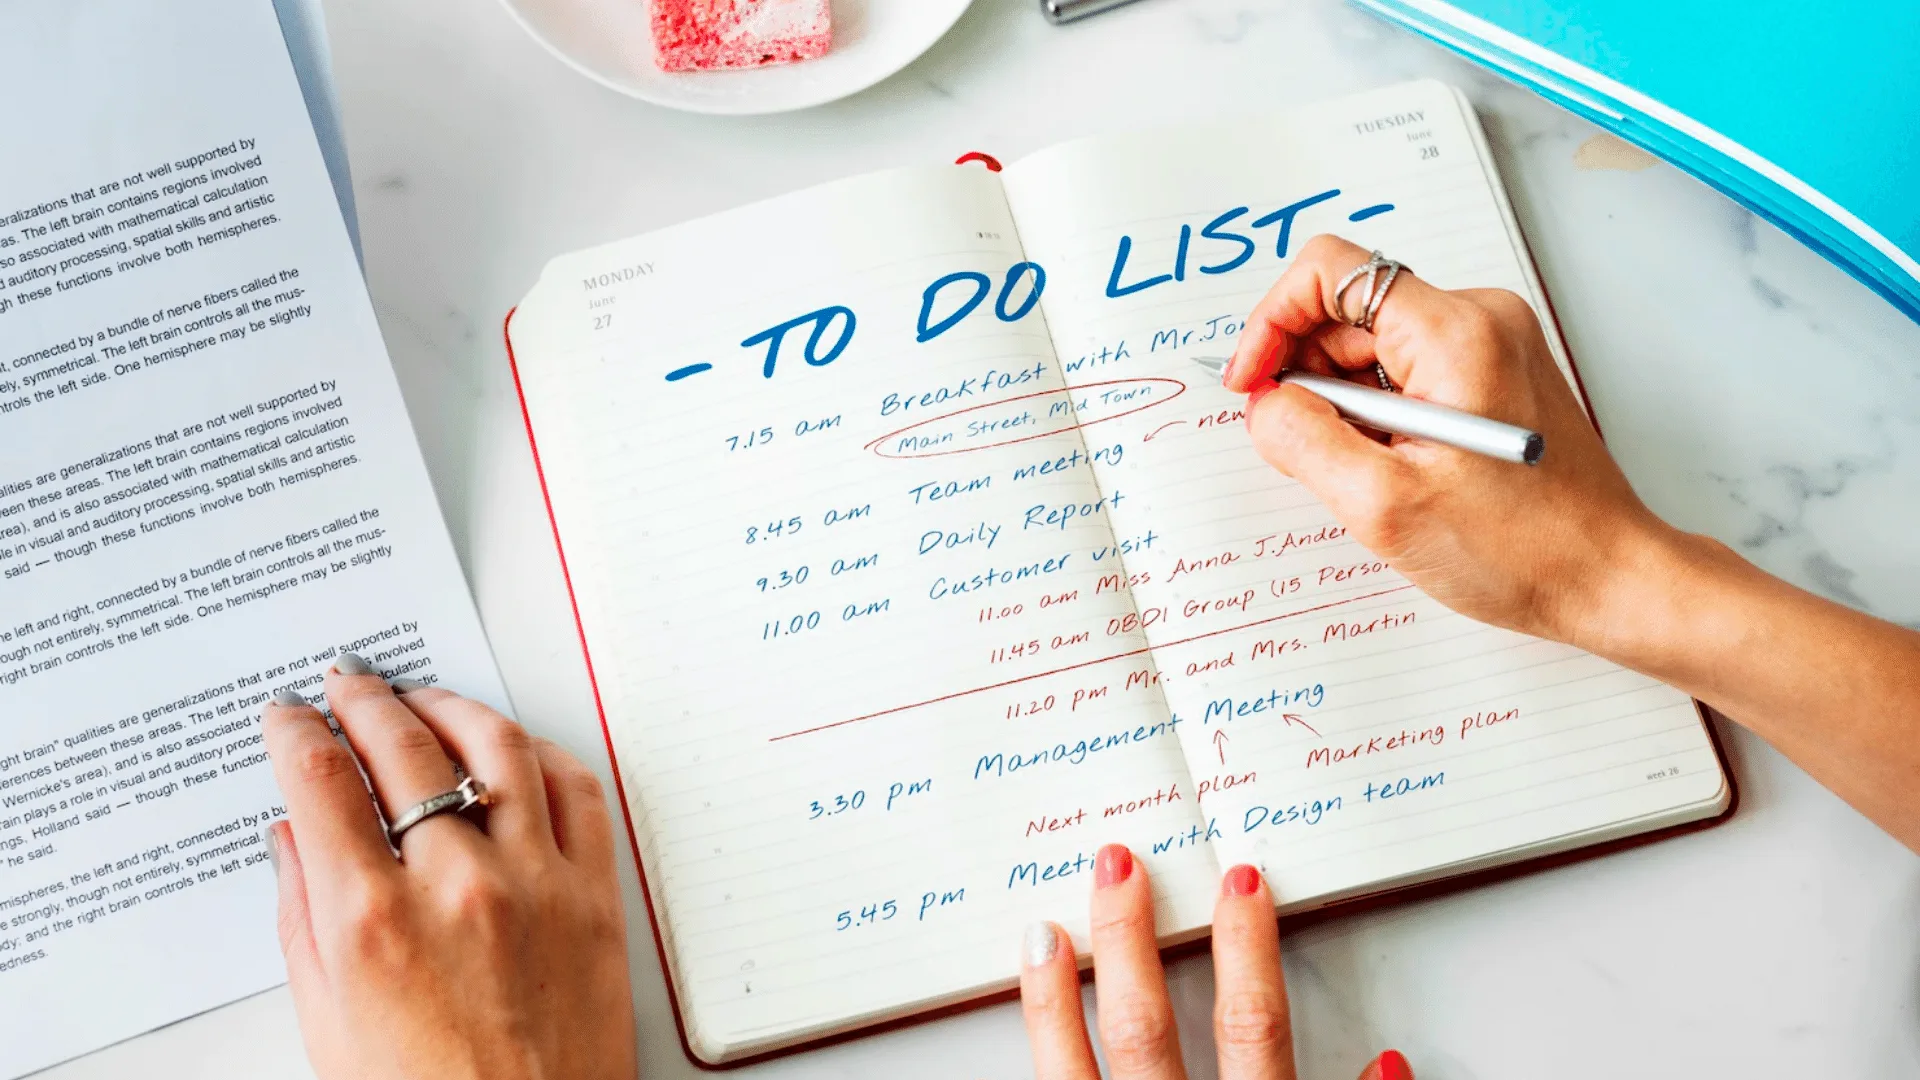 eralizations that are not well supported by
as. The left brain contains regions involved
so associated with mathematical calculation
d auditory processing, spatial skills and artistic
gh these functions involve both hemispheres.
t, connected by a bundle of nerve fibers called the
ely, symmetrical. The left brain controls all the mus-
ntrols the left side. One hemisphere may be slightly
alities are generalizations that are not well supported by
veen these areas. The left brain contains regions involved
area), and is also associated with mathematical calculation
le in visual and auditory processing, spatial skills and artistic
said — though these functions involve both hemispheres.
he left and right, connected by a bundle of nerve fibers called the
ough not entirely, symmetrical. The left brain controls all the mus-
right brain controls the left side. One hemisphere may be slightly
ght brain" qualities are generalizations that are not well supported by
erences between these areas. The left brain contains involved
Wernicke's area), and is also associated calculation
rain plays a role in visual and auditory
ngs, Holland said — though these
" he said.
mispheres, the left and right, connected by a
e strongly, though not entirely, symmetrical.
dy; and the right brain controls the left side
edness.
MONDAY
June
27
TUESDAY
June
28
- TO DO LIST -
7.15 am Breakfast with Mr.Jo
Main Street, Mid Town
new
8.45 am Team meeting
9.30 am Daily Report
11.00 am Customer visit
11.00 am Miss Anna J.Ander
11.45 am OBDI Group (15 Perso
11.20 pm Mr. and Mrs. Martin
3.30 pm Management Meeting
Next month plan
Marketing plan
5.45 pm Meeti with Design team
week 26